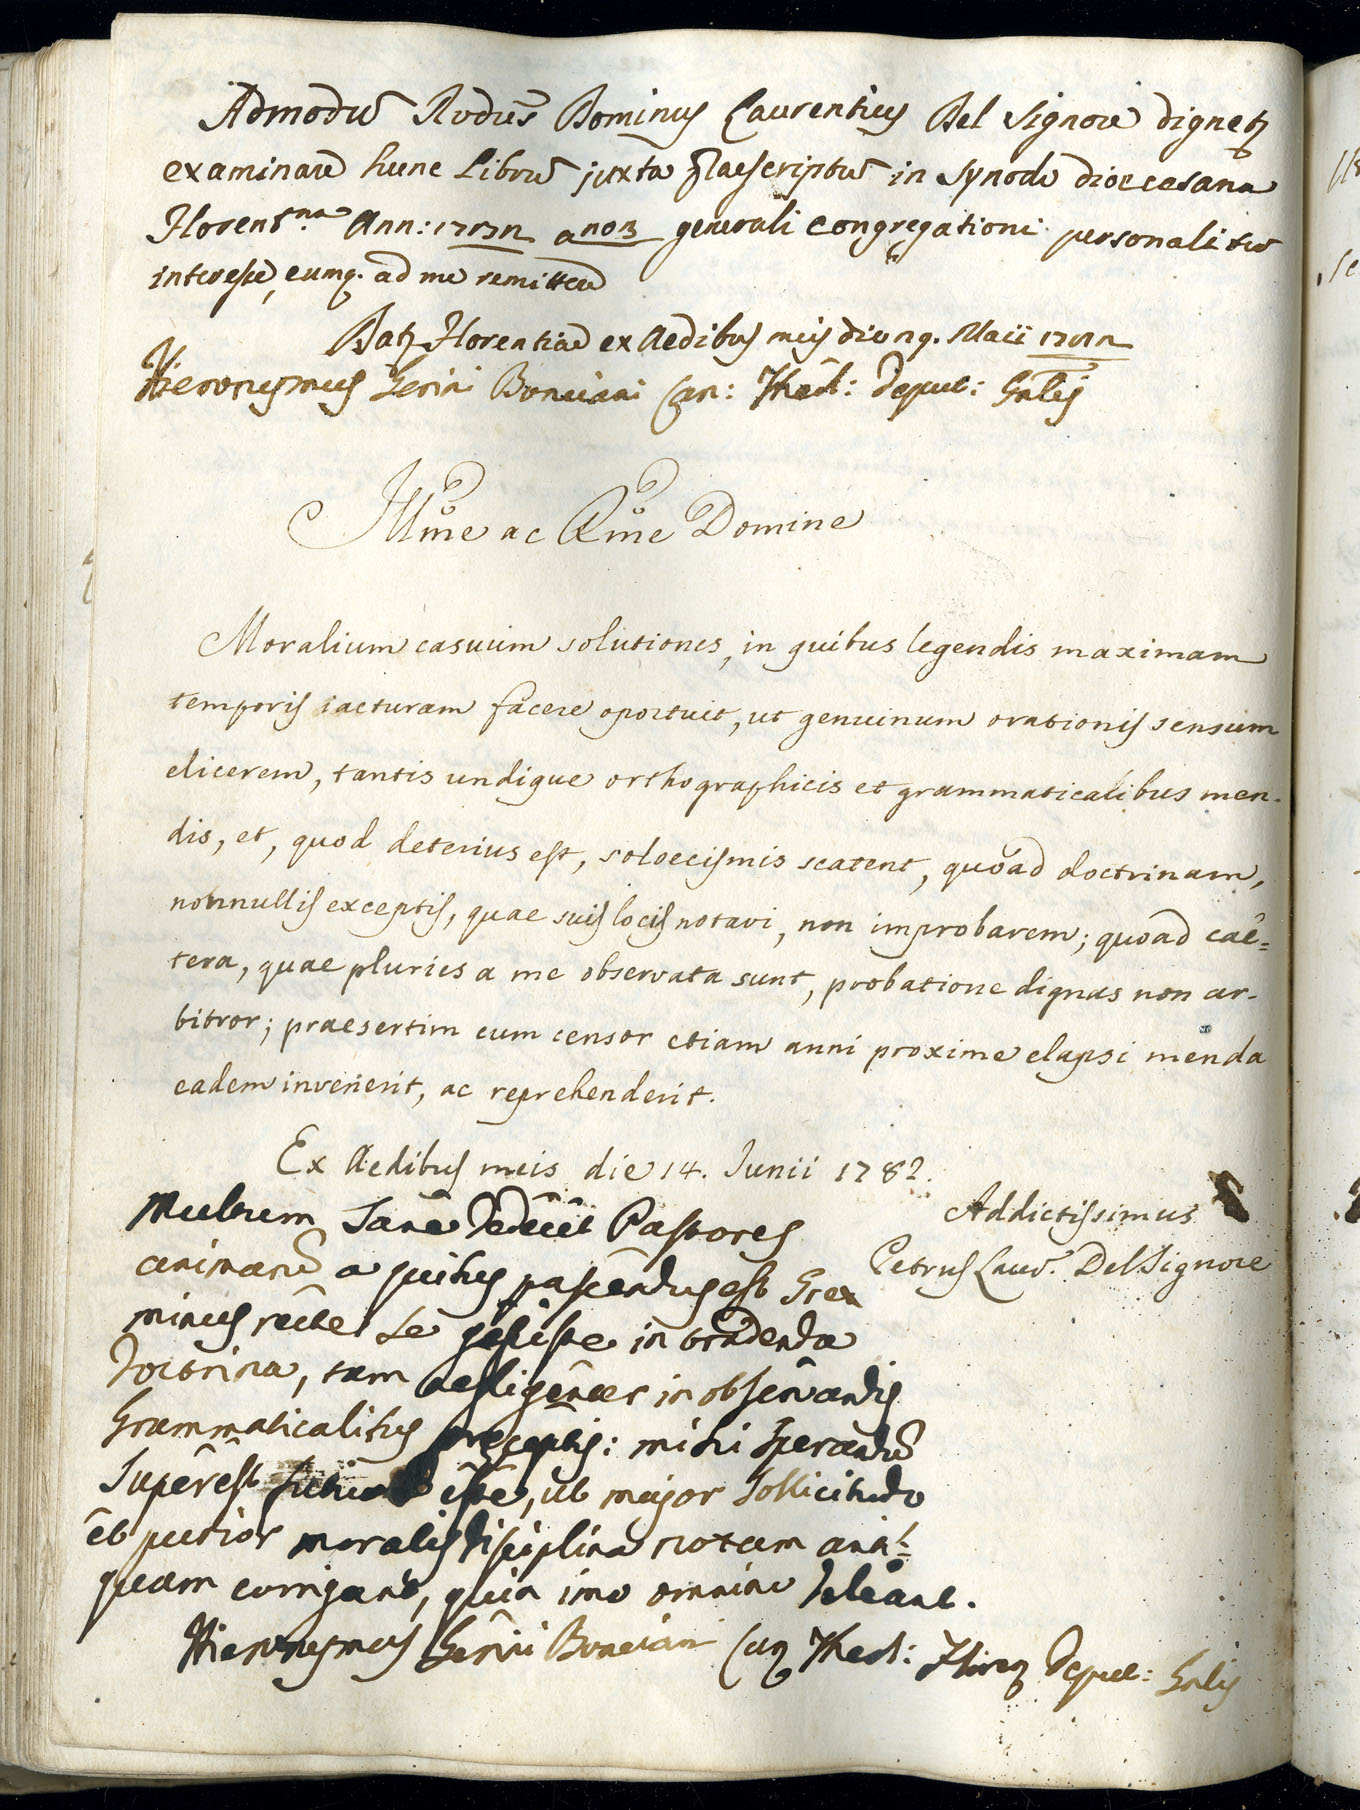 Admodu Rvdus Dominus Laurentius Del Signore dignetz
examinare hunc Libru juxta Praescriptu in Synodo dioecesana
Florent.na Ann: generali congregationi personaliter
interesse, eumq. ad me remittere
Datz Florentiae ex Aedibus meis die Maii
Hieronymus Serini Bonciani Can: Theol: Deput: Gnlis
Illme ac Rme Domine
Moralium casuum solutiones, in quibus legendis maximam
temporis iacturam facere oportuit, ut genuinum orationis sensum
elicerem, tantis undique orthographicis et grammaticalibus men-
dis, et, quod deterius est, soloecismis scatent, quoad doctrinam,
nonnullis exceptis, quae suis locis notavi, non improbarem; quoad cae=
tera, quae pluries a me observata sunt, probatione dignas non ar-
bitror; praesertim cum censor etiam anni proxime elapsi menda
eadem invenerit, ac reprehenderit.
Ex Aedibus meis die 14. Junii 1782.
Addictissimus
Petrus Laur. Del Signore
Multum sane dedecet Pastores
animaru a quibus pascendus est Grex
minus recte se gessisse in tradenda
doctrina, tam negligenter in observandis
Grammaticalibus preceptis: mihi sperandu
superest esse, ut major sollicitudo
et purior moralis disciplina notam anti=
quam corrigant, quin imo omnino deleant.
Hieronymus Serini Bonciani Can Theol: Floren Deput: Gnlis